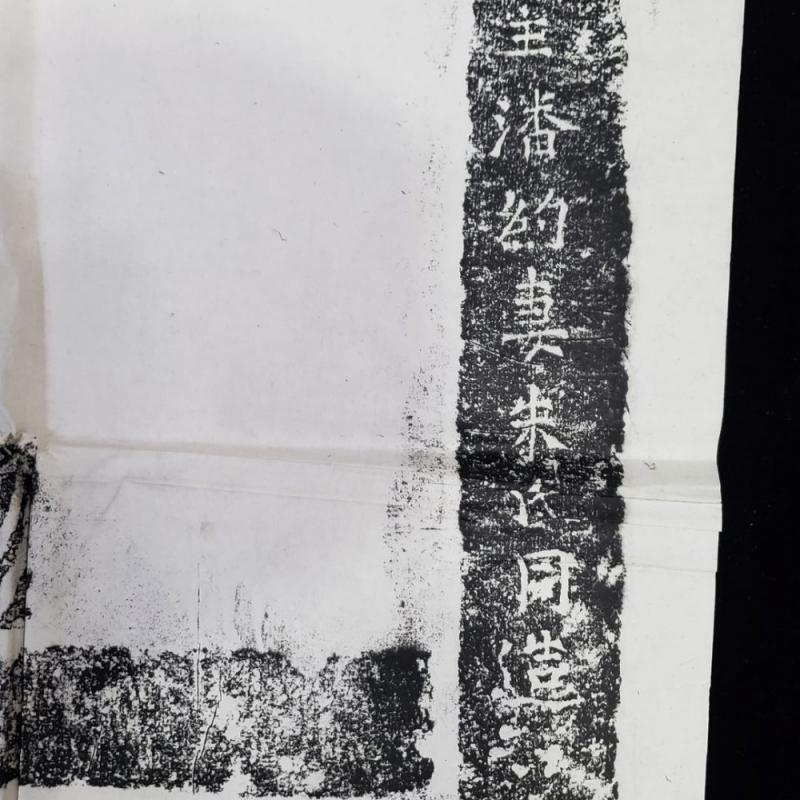 主潘約妻朱氏同造